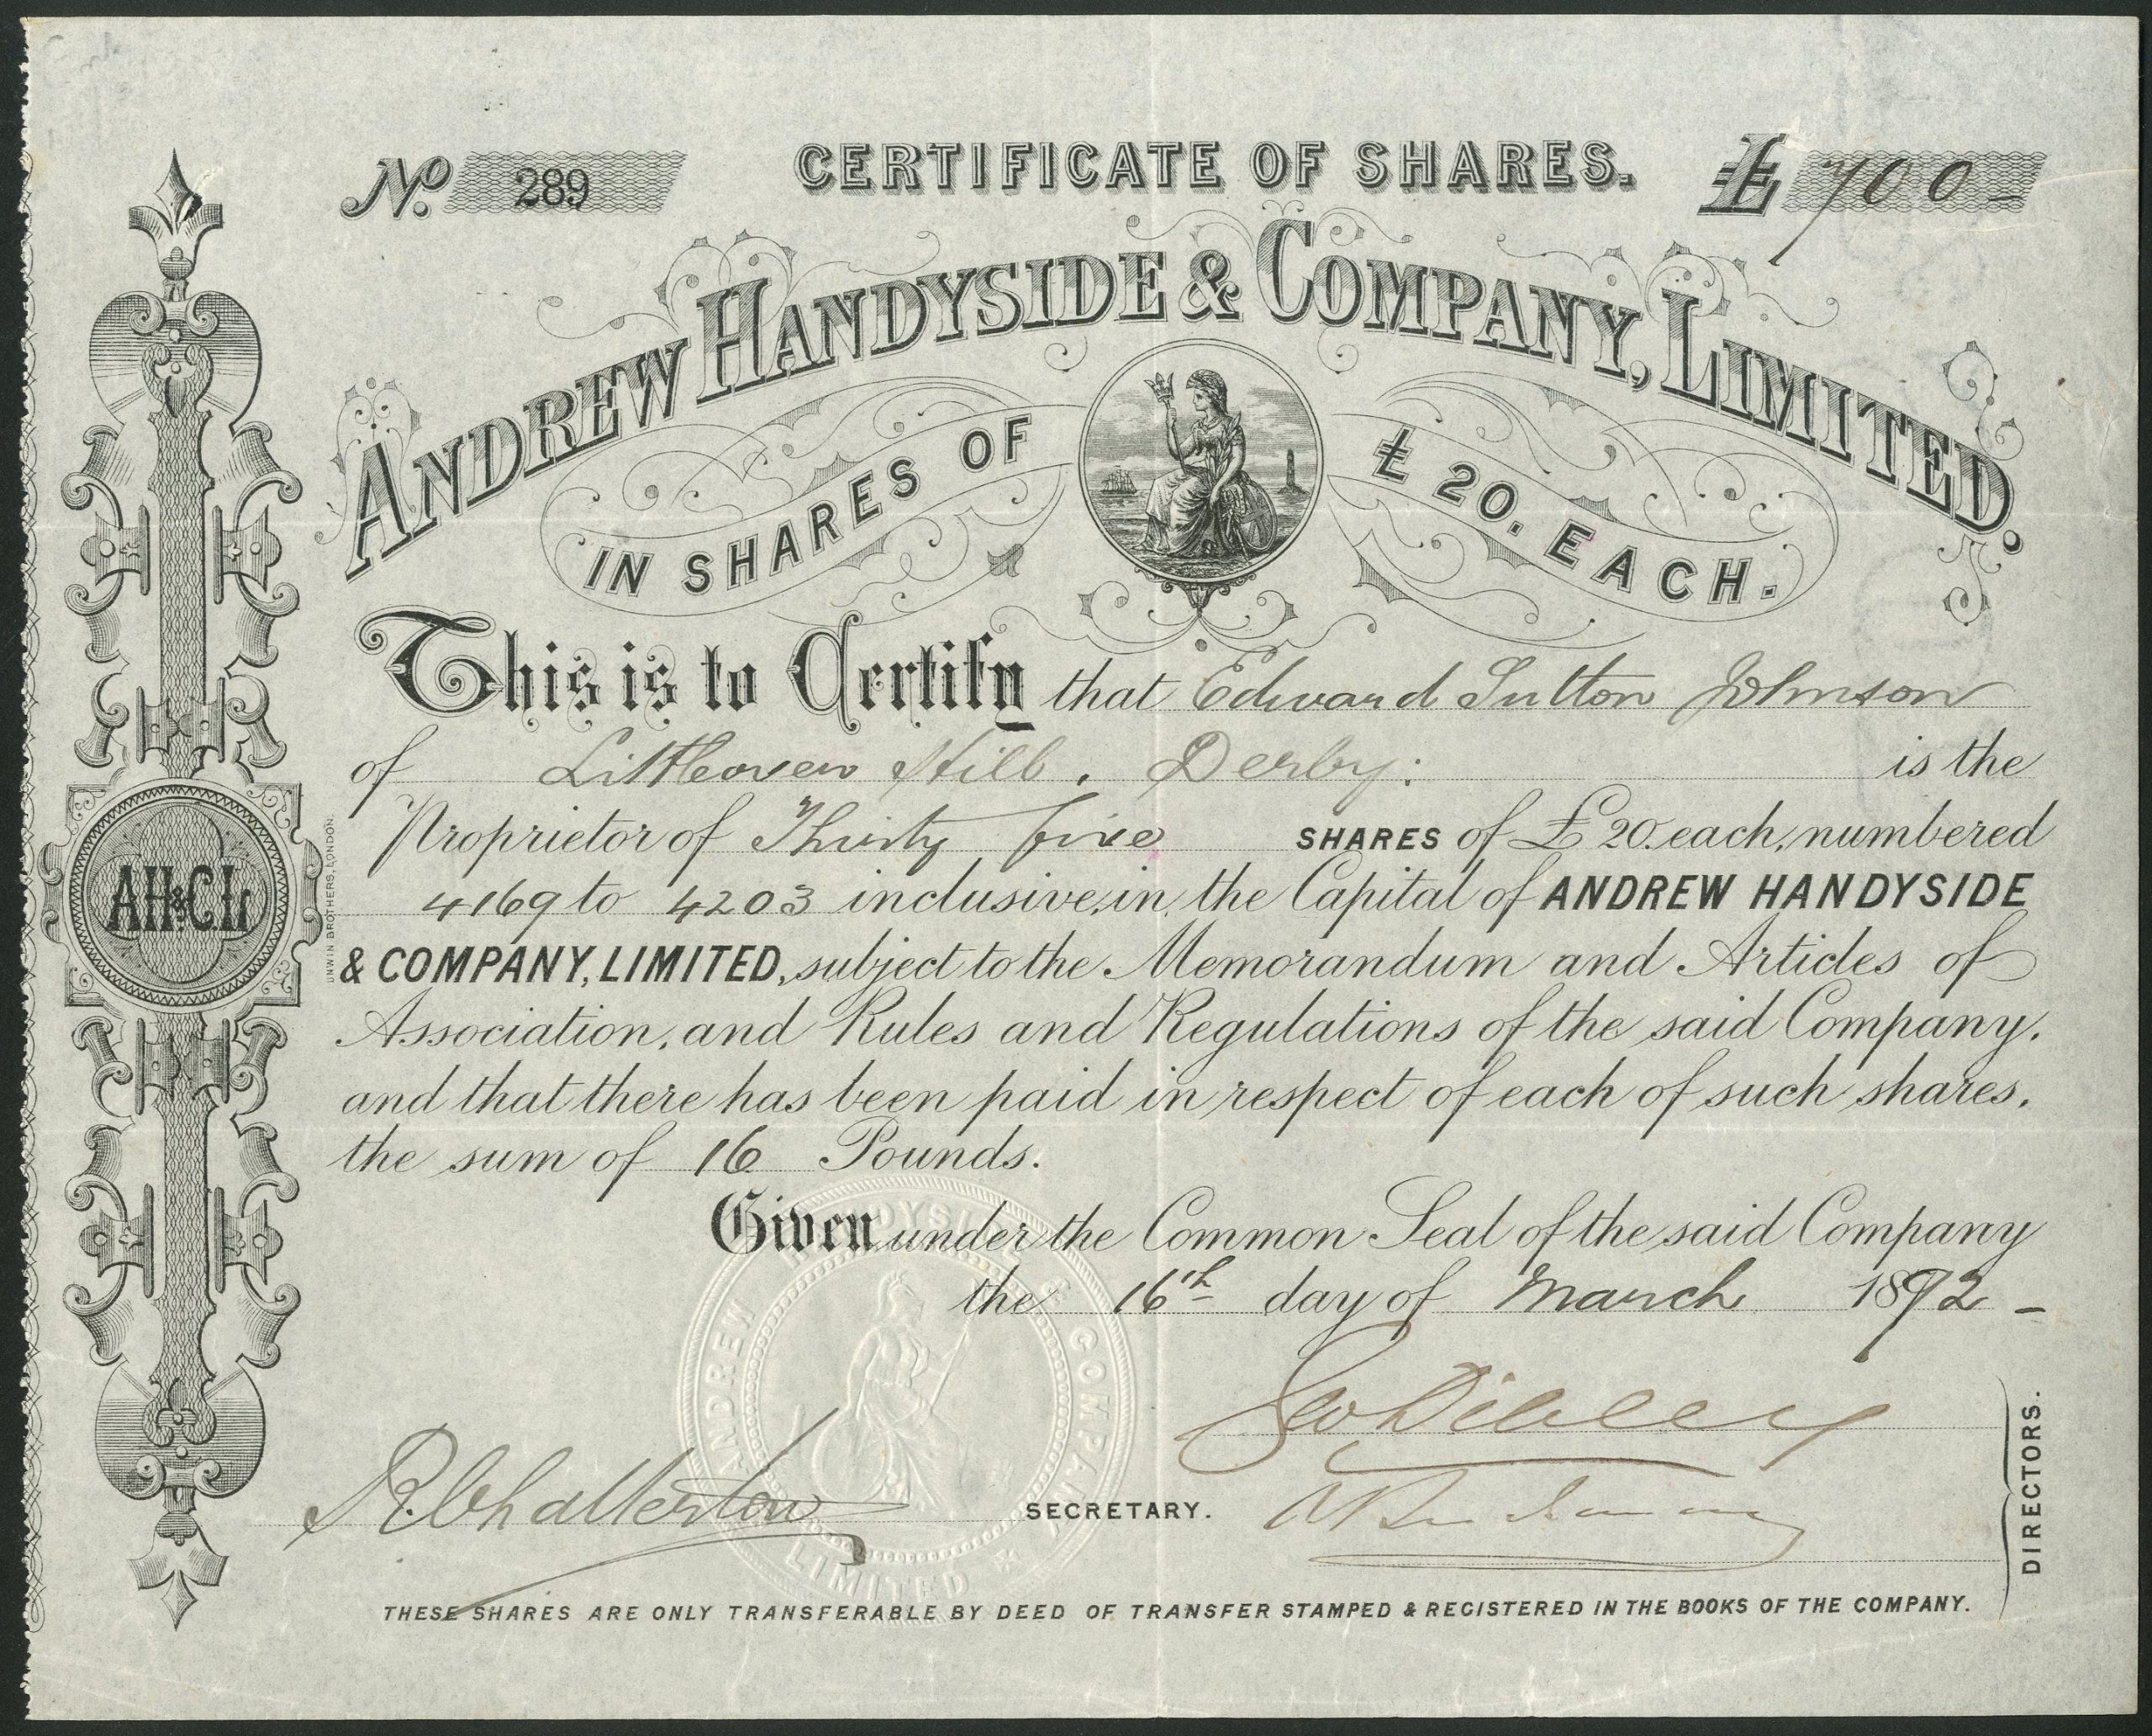 No. 289 CERTIFICATE OF SHARES. £700-
ANDREW HANDYSIDE & COMPANY, LIMITED.
IN SHARES OF £20. EACH.
This is to Certify that Edward Sutton Johnson
of Littleover Hill, Derby: is the
Proprietor of Thirty five SHARES of £20. each, numbered
4169 to 4203 inclusive, in the Capital of ANDREW HANDYSIDE
& COMPANY, LIMITED, subject to the Memorandum and Articles of
Association, and Rules and Regulations of the said Company,
and that there has been paid in respect of each of such shares,
the sum of 16 Pounds.
Given under the Common Seal of the said Company
the 16th day of March 1892 -
SECRETARY.
DIRECTORS.
THESE SHARES ARE ONLY TRANSFERABLE BY DEED OF TRANSFER STAMPED & REGISTERED IN THE BOOKS OF THE COMPANY.
AH&CLr
UNWIN BROTHERS, LONDON.
ANDREW HANDYSIDE & COMPANY LIMITED
R. Chatterton